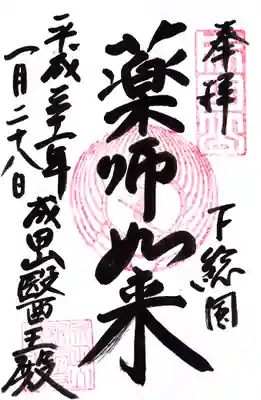 奉拝
下総国
薬師如来
平成三十一年
一月二十八日
成田山醫王殿